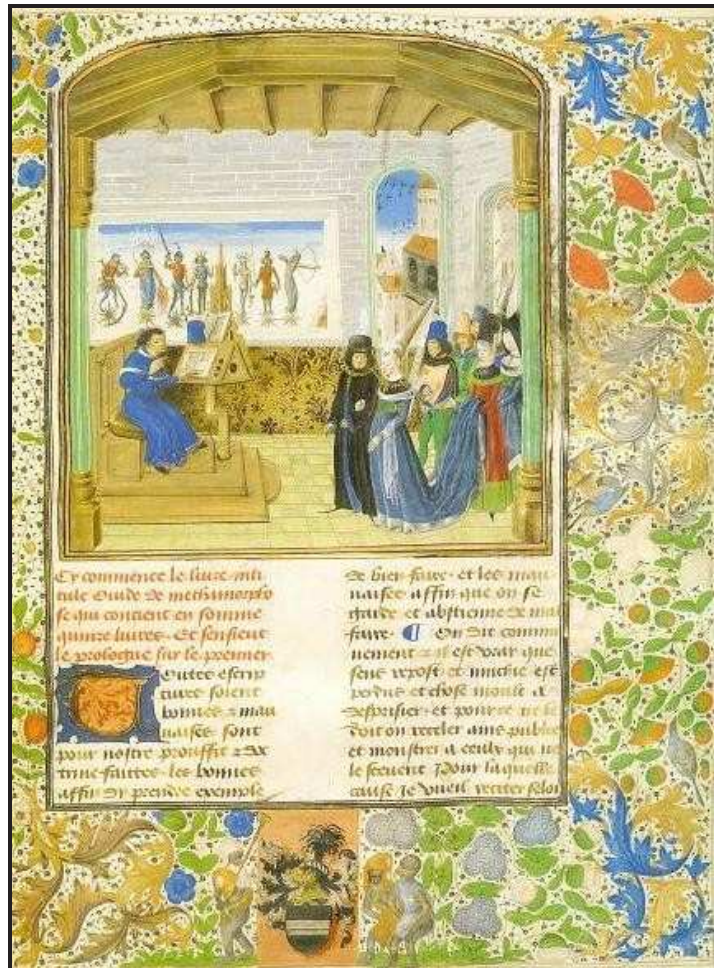 Cy commence le liure inti
tule Ouide de methamorpho
se qui contient en somme
quinze liures. Et sensieut
le prologue sur le premier
Toutes escrip
tures soient
bonnes ⁊ mau
uaises sont
pour nostre prouffit ⁊ doc
trine faittes. les bonnes
affin dy prendre exemple
de bien faire. et les mau
uaises affin que on se
garde et abstienne de mal
faire. ¶ On dit commu
nement ⁊ il est vray que
sens repost et muchie est
perdus et chose moult a
desprisier. et pour ce ne le
doit on receler ains publier
et monstrer a ceulx qui ne
le sceuent Pour laquelle
cause Je vueil reciter selon